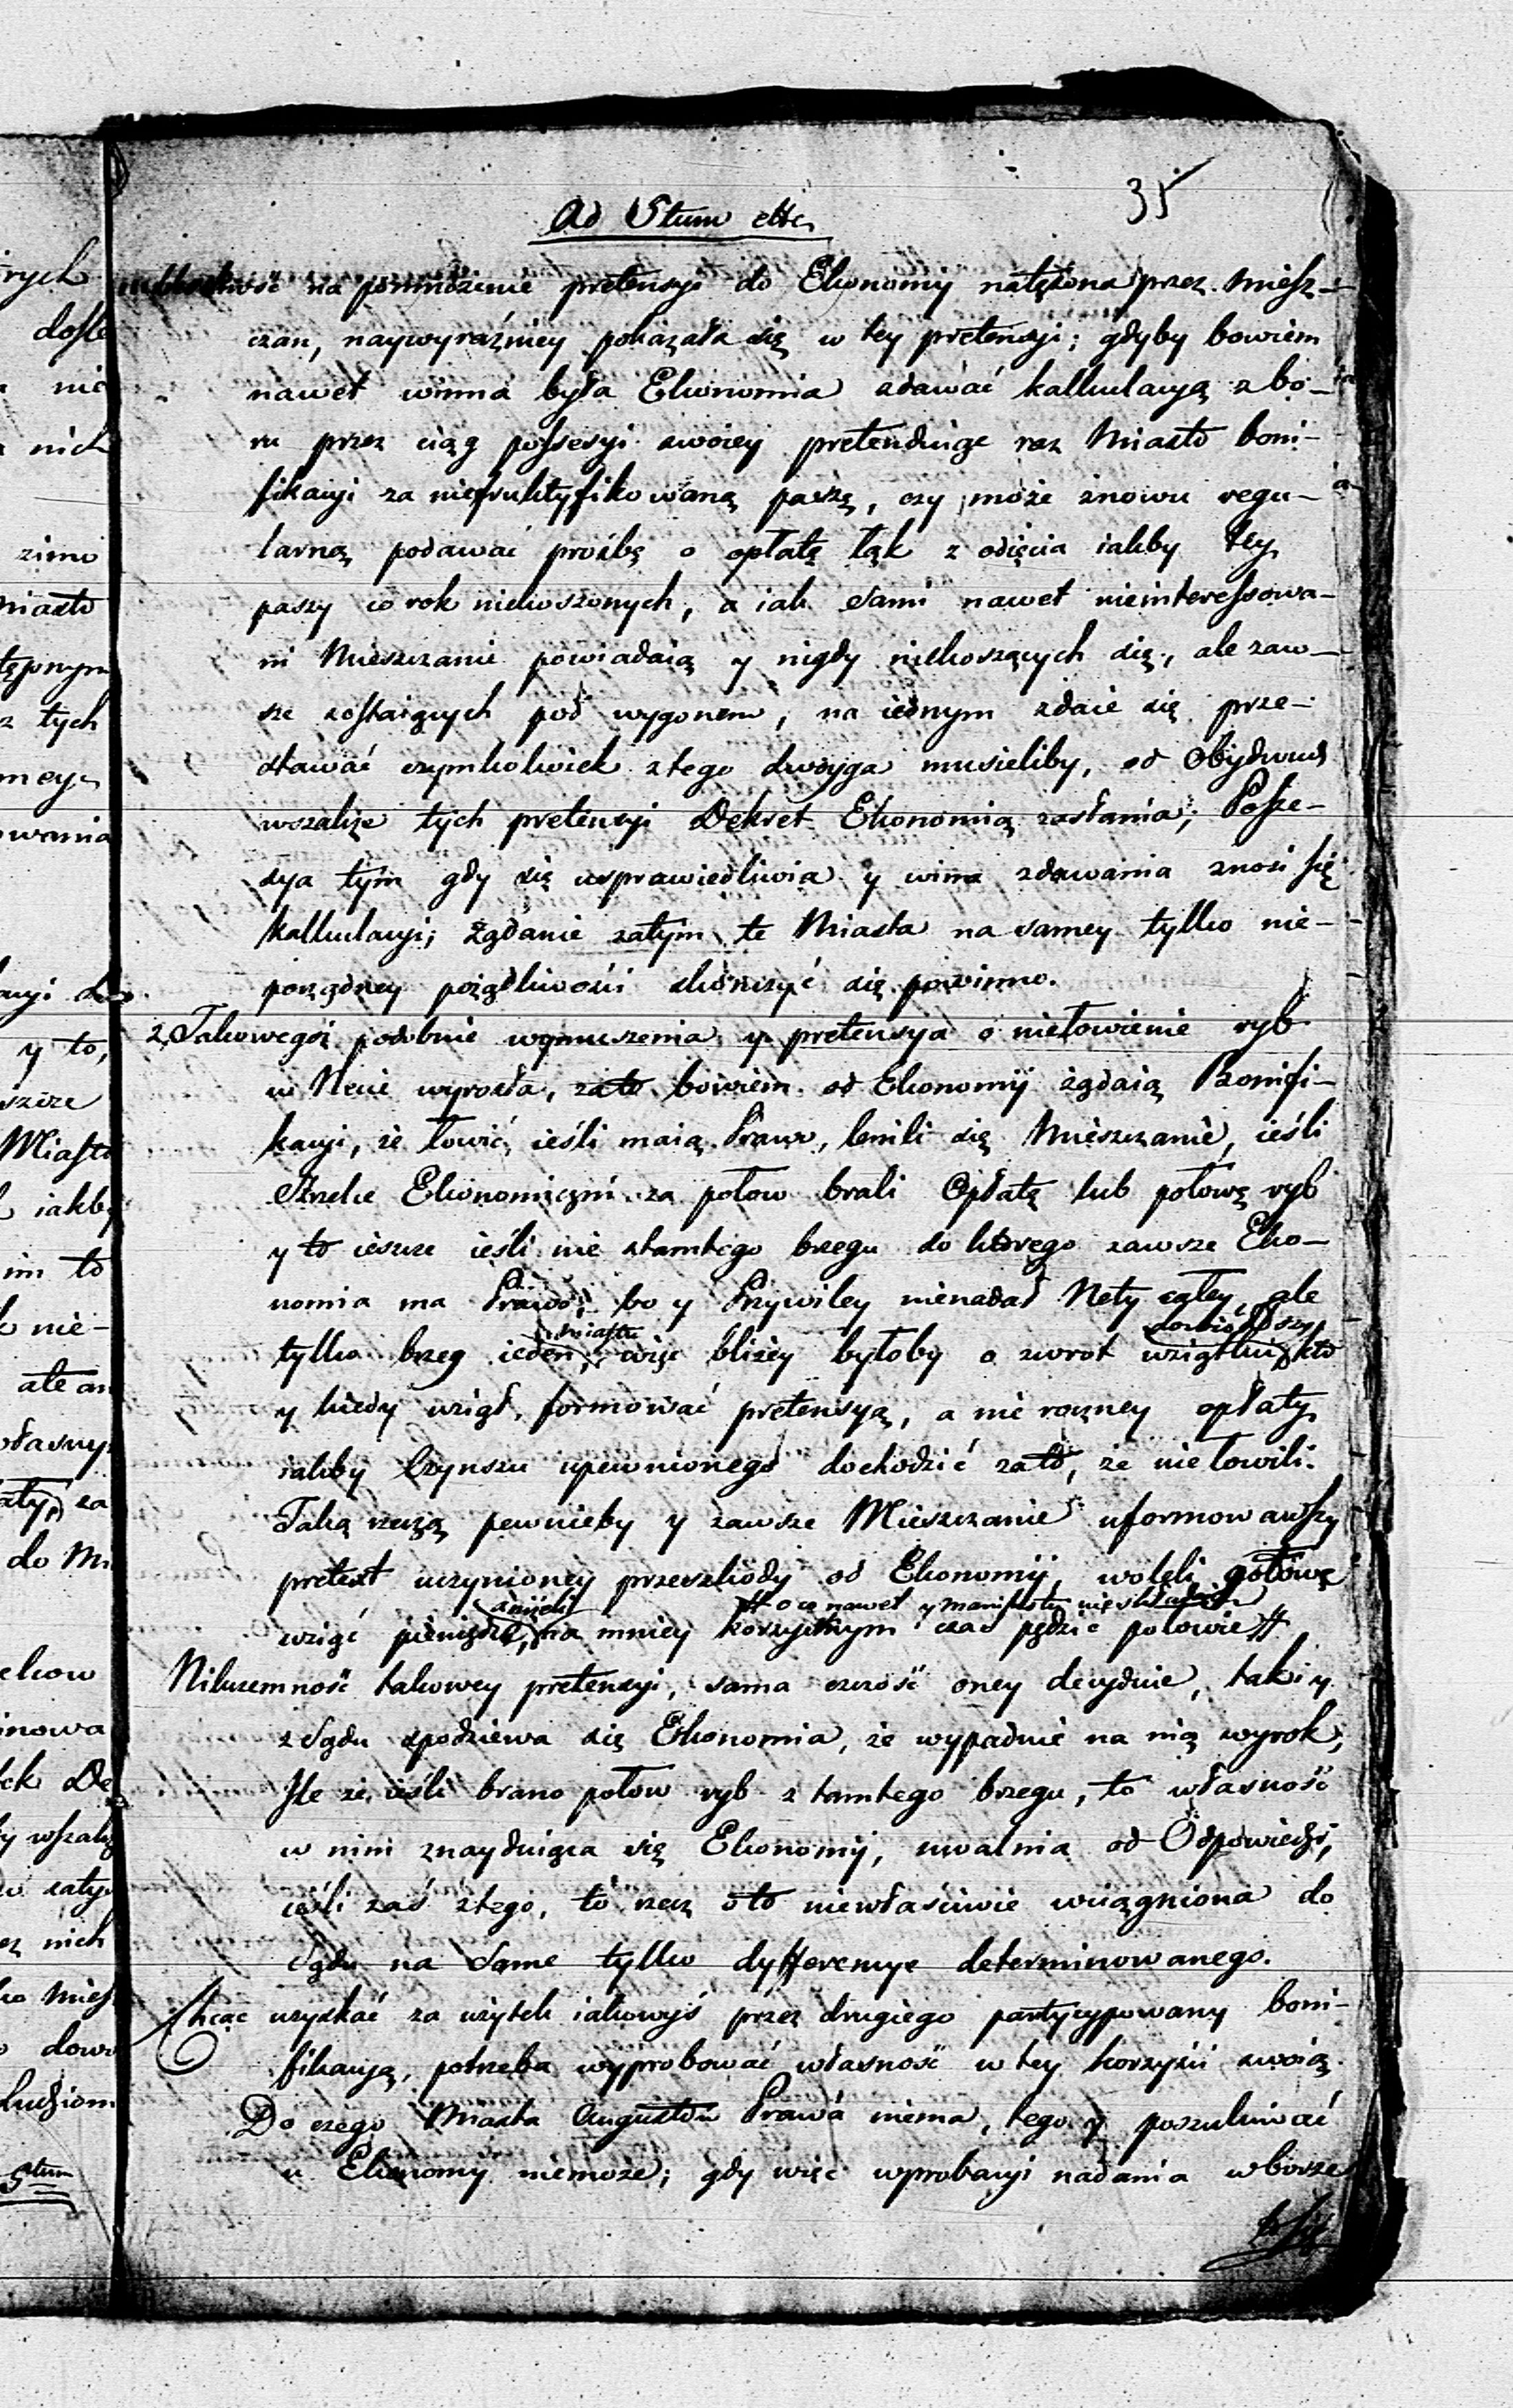 35
Ad 5tum etc
na pomnożenie pretensyi do Ekonomij natężona przez Miesz-
czan, naywyraźniey pokazała się w tey pretensyi; gdyby bowiem
nawet winna była Ekonomia zdawać kalkulacyą zbo-
ru przez ciąg possesyi swoiey pretenduiąc raz Miasto boni-
fikacyi za niefruktyfikowaną paszę, czy może znowu regu-
larną podawać proźbę o opłatę łąk z odięcia iakby tey
paszy co rok niekoszonych, a iak sami nawet nieinteressowa-
ni Mieszczanie powiadaią y nigdy niekoszących się, ale zaw-
sze zostaiących pod wygonem, na iednym zdaie się prze-
stawać czymkolwiek z tego dwoyga musieliby, od Obydwuch
wszakże tych pretensyi Dekret Ekonomią zasłania; Posse-
sya tym gdy się usprawiedliwia y wina zdawania znosi się
kalkulacyi; Żądanie zatym te Miasta na samey tylko nie-
porządney pożądliwości skończyć się powinno.
2. Takowegoż podobnie wymuszenia y pretensya o niełowienie ryb
w Necie wyrosła, zato bowiem od Ekonomij żądaią Bonifi-
kacyi, że łowić, ieśli maią Prawo, lenili się Mieszczanie, ieśli
Strzelce Ekonomiczni za połow brali Opłatę lub połowę ryb
y to ieszcze ieśli nie z tamtego brzegu do którego zawsze Eko-
nomia ma Prawo, bo y Przywiley nienadał Nety całey, ale
miastu dowiodszy
tylko brzeg ieden, więc bliżey byłoby o zwrot wziątku kto
y kiedy wziął, formować pretensyą, a nie roczney opłaty
iakby Czynszu upewnionego dochodzić zato, że nie łowili.
Taką rzeczą pewnieby y zawsze Mieszczanie uformowawszy
pretext uczynioney przeszkody od Ekonomij, woleli gotowe
aniżeli # o co nawet y manifestu nie
wziąć pieniądze, na mniey korzystnym czas pędzić połowie #
Nikczemność takowey pretensyi, sama czczość oney decyduie, taki y
z Sądu spodziewa się Ekonomia, że wypadnie na nią wyrok,
Ile że ieśli brano połow ryb z tamtego brzegu, to własność
w nim znayduiąca się Ekonomij, uwalnia od Odpowiedzi,
ieśli zaś z tego, to rzecz oto niewłaściwie wciągniona do
Sądu na same tylko dyfferencye determinowanego.
Chcąc uzyskać za użytek iakowyś przez drugiego partycypowany boni-
fikacyą, potrzeba wyprobować własność w tey korzyści swoią.
Do czego Miasto Augustów Prawa niema, tego y poszukiwać
u Ekonomij niemoże; gdy więc w probacyi nadania w borze